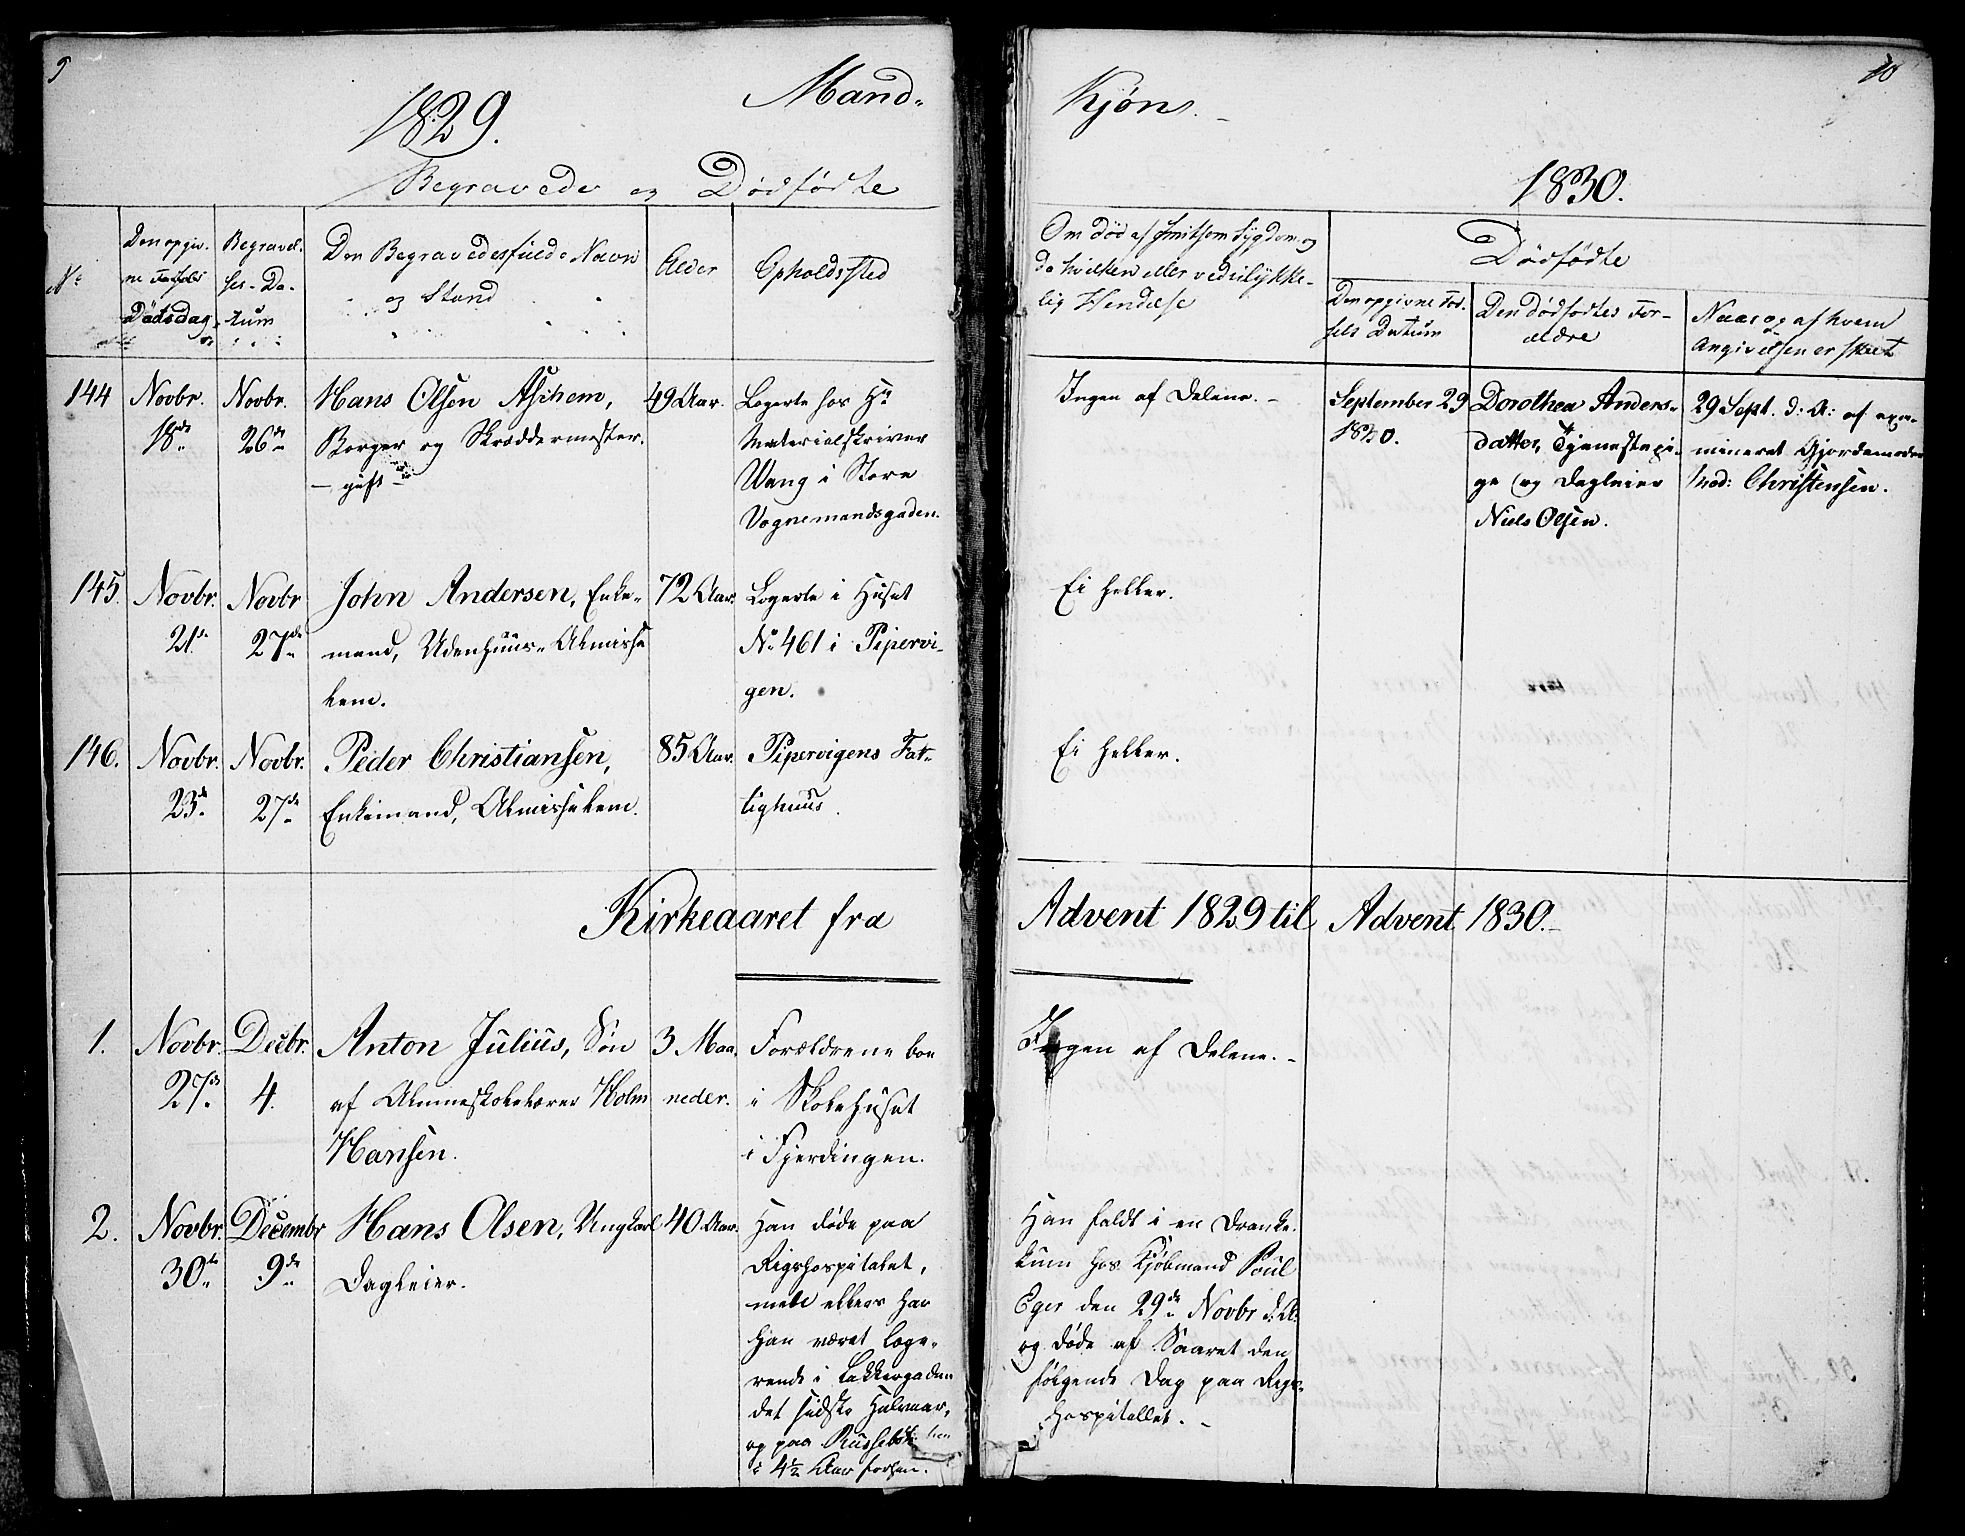 9
1829.
Mand-
Begravede og Dødfødte
No
Den opgiv-
ne
Dödsdag
Begravel-
ses-Da-
tum
Den Begravedes fulde Navn
og Stand
Alder
Opholdssted
144
Novbr.
18de
Novbr.
26de
Hans Olsen Aschem,
Borger og Skræddermester.
– gift –
49 Aar.
Logerte hos Hr
Materialskriver
Wang i Store
Vognemandsgaden.
145.
Novbr.
21de
Novbr
27de
John Andersen, Enke-
mand, Udenhuus-Almisse
lem.
72 Aar.
Logerte i Huset
No 461 i Pipervi-
gen.
146.
Novbr.
23de
Novbr.
27de
Peder Christiansen,
Enkemand, Almisselem.
85 Aar.
Pipervigens Fat-
tighuus.
Kirkeaaret fra
1.
Novbr.
27de
Decbr.
4.
Anton Julius, Søn
af Almueskolelærer Holm
Hansen.
3 Maa-
neder.
Forældrene boe
i Skolehuset
i Fjerdingen.
2.
Novbr.
30te
Decembr
9de
Hans Olsen, Ungkarl
Dagleier.
40 Aar.
Han døde paa
Rigshospitalet,
men ellers har
han været loge-
rende i Lakkergaden
det sidste Halvaar,
og paa
i 4½ Aar forhen.
10
Kjøn.
1830.
Om død af smitsom Sygdom og
da hvilken eller ved ulykke-
lig Hendelse
Dødfødte
Den opgivne Fød-
sels Datum
Den dødfødtes For-
ældre
Naar og af hvem
Angivelsen er skeet
Ingen af Delene. –
September 29
1830.
Dorothea Anders-
datter, Tjenestepi-
ge og Dagleier
Niels Olsen.
29 Sept. d: A: af exa-
mineret Gjordemoder
Mad: Christensen.
Ei heller.
Ei heller.
Advent 1829 til Advent 1830. –
Ingen af Delene. –
Han faldt i en Dranke-
kum hos Kjøbmand Poul
Eger den 29de Novbr d: A:
og døde af Saaret den
følgende Dag paa Rigs-
Hospitallet. –